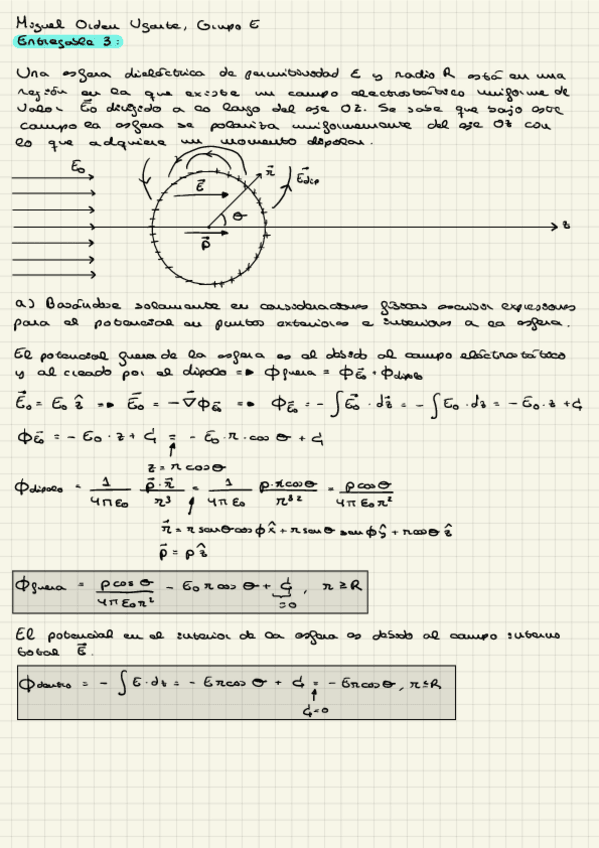 Miguel Orden Ugarte, Grupo E
Entregable 3:
Una esfera dieléctrica de permitividad ε y radio R está en una
región en la que existe un campo electrostático uniforme de
valor E⃗₀ dirigido a lo largo del eje OZ. Se sabe que bajo este
campo la esfera se polariza uniformemente del eje OZ con
lo que adquiere un momento dipolar.
E₀
E⃗
r⃗
E⃗dip
θ
p⃗
z
a) Basándose solamente en consideraciones físicas escribir expresiones
para el potencial en puntos exteriores e interiores a la esfera.
El potencial fuera de la esfera es el debido al campo electrostático
y al creado por el dipolo => ϕfuera = ϕE⃗₀ + ϕdipolo
E⃗₀ = E₀ ẑ => E⃗₀ = -∇⃗ϕE⃗₀ => ϕE⃗₀ = -∫E⃗₀ · dz⃗ = -∫E₀ · dz = -E₀ · z + C₁
ϕE⃗₀ = -E₀ · z + C₁ = -E₀ · r · cos θ + C₁
z = r cos θ
ϕdipolo = 1/(4πε₀) (p⃗ · r⃗)/r³ = 1/(4πε₀) (p · r cos θ)/r³² = p cos θ/(4πε₀r²)
r⃗ = r sen θ cos ϕ x̂ + r sen θ sen ϕ ŷ + r cos θ ẑ
p⃗ = p ẑ
ϕfuera = p cos θ/(4πε₀r²) - E₀ r cos θ + C₁, r ≥ R
=0
El potencial en el interior de la esfera es debido al campo interno
total E⃗.
ϕdentro = -∫E · dz = -E r cos θ + C₁ = -E r cos θ, r ≤ R
C₁=0